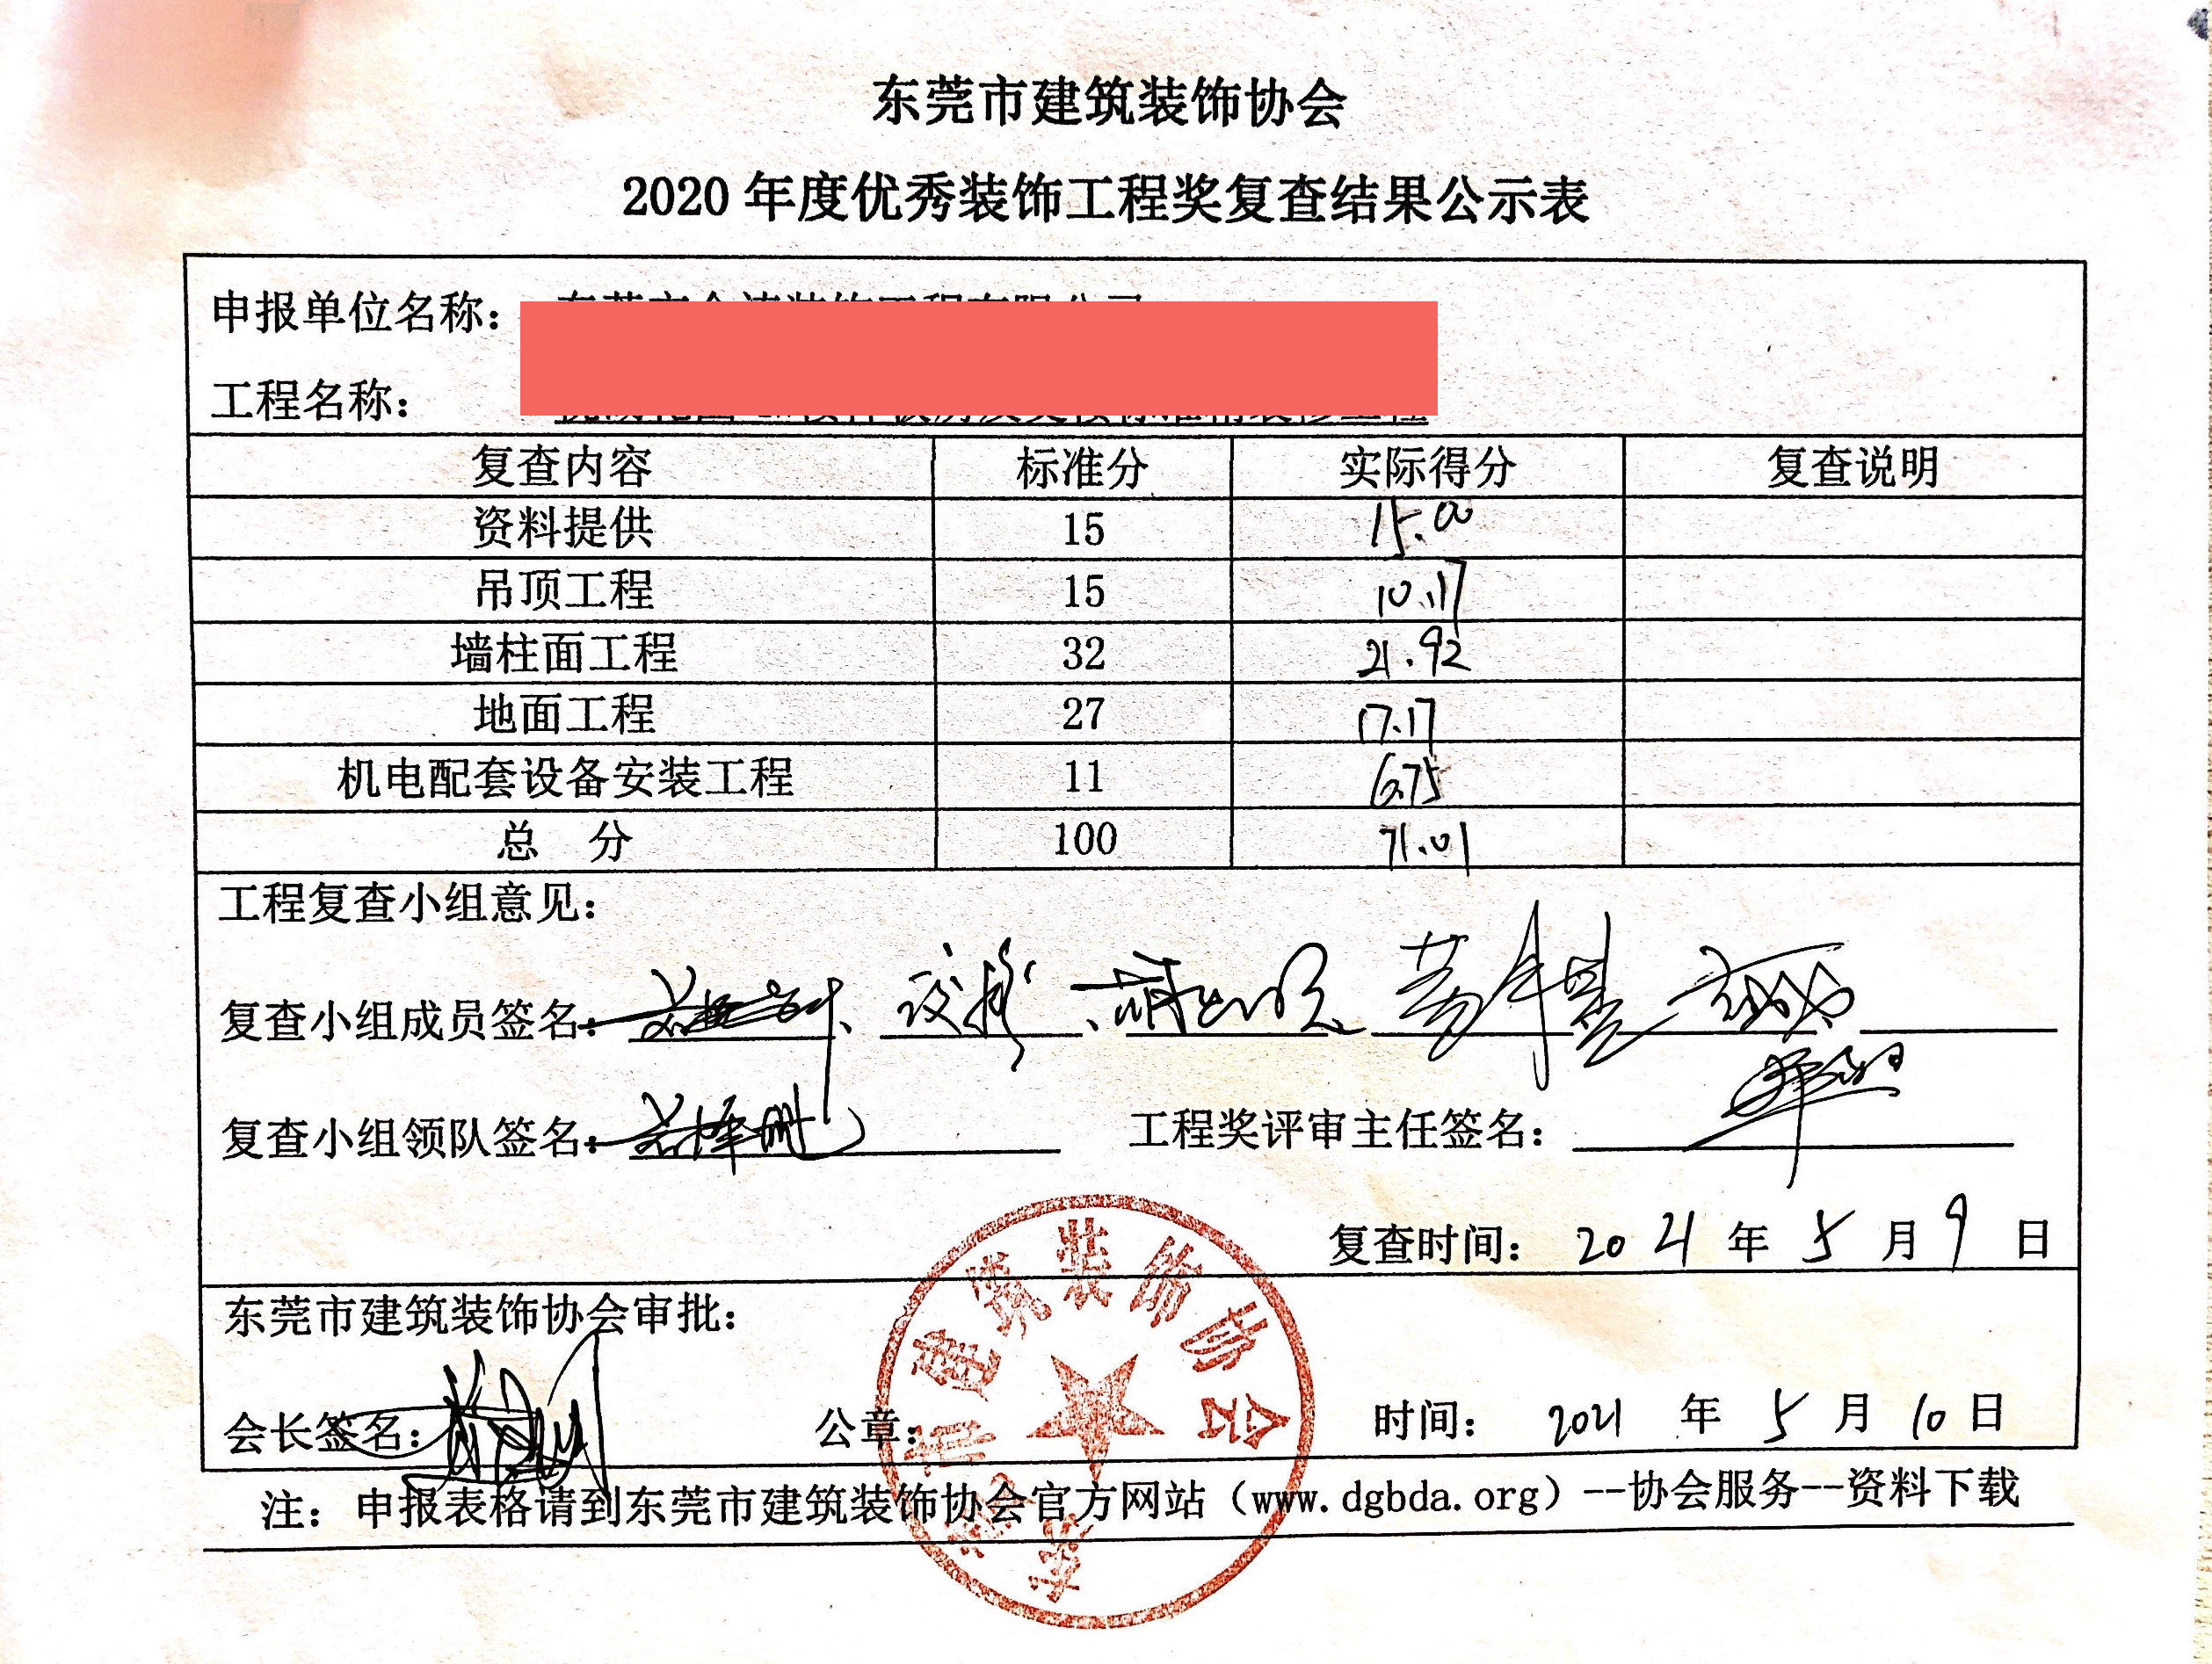 东莞市建筑装饰协会
2020 年度优秀装饰工程奖复查结果公示表
申报单位名称：
工程名称：
复查内容 标准分 实际得分 复查说明
资料提供 15 15.00
吊顶工程 15 10.17
墙柱面工程 32 21.92
地面工程 27 17.17
机电配套设备安装工程 11 6.75
总 分 100 71.01
工程复查小组意见：
复查小组成员签名：
复查小组领队签名： 工程奖评审主任签名：
复查时间： 2021 年 5 月 9 日
东莞市建筑装饰协会审批：
会长签名： 公章： 时间： 2021 年 5 月 10 日
注：申报表格请到东莞市建筑装饰协会官方网站（www.dgbda.org）--协会服务--资料下载
东莞市建筑装饰协会